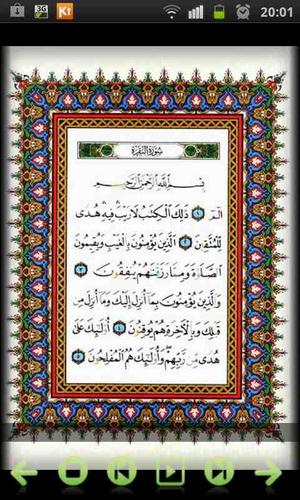 3G
K1
20:01
سُورَةُ الْبَقَرَةِ
بِسْمِ اللَّهِ الرَّحْمَٰنِ الرَّحِيمِ
الٓمٓ ١ ذَٰلِكَ الْكِتَٰبُ لَا رَيْبَ فِيهِ هُدًى
لِّلْمُتَّقِينَ ٢ الَّذِينَ يُؤْمِنُونَ بِالْغَيْبِ وَيُقِيمُونَ
الصَّلَوٰةَ وَمِمَّا رَزَقْنَٰهُمْ يُنفِقُونَ ٣
وَالَّذِينَ يُؤْمِنُونَ بِمَا أُنزِلَ إِلَيْكَ وَمَا أُنزِلَ مِن
قَبْلِكَ وَبِالْآخِرَةِ هُمْ يُوقِنُونَ ٤ أُولَٰئِكَ عَلَىٰ
هُدًى مِّن رَّبِّهِمْ وَأُولَٰئِكَ هُمُ الْمُفْلِحُونَ ٥